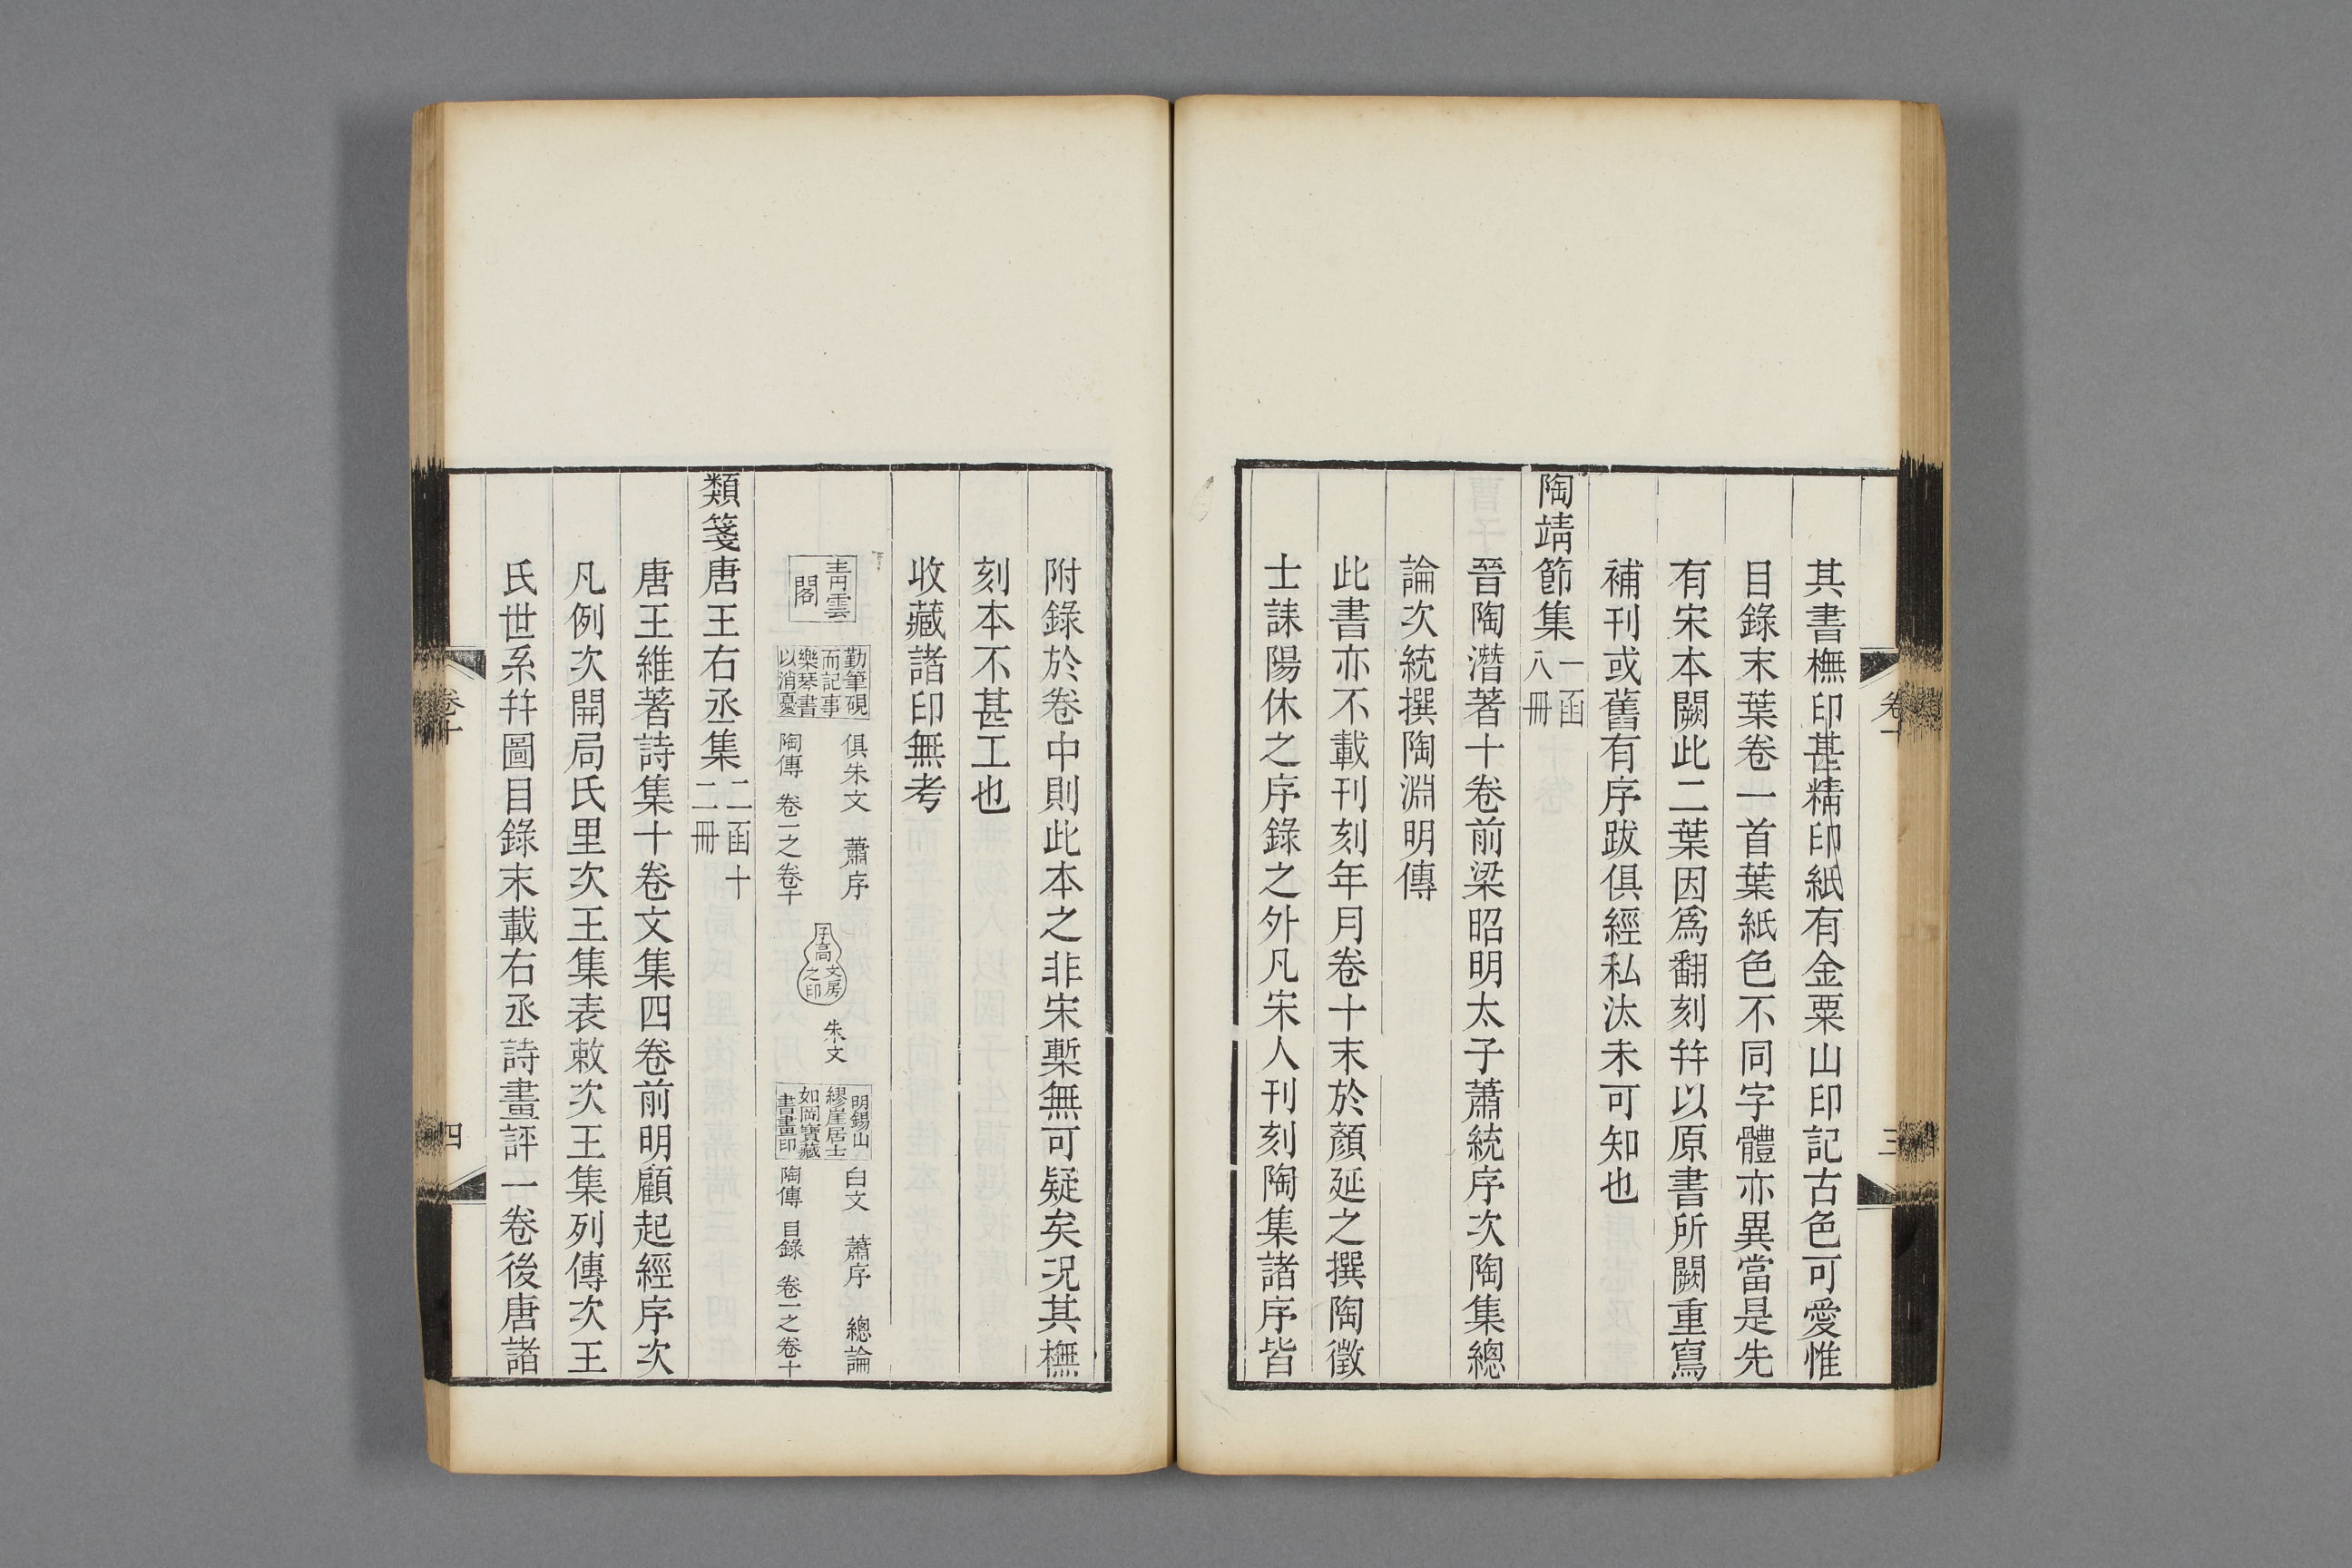 其書橅印甚精印紙有金粟山印記古色可愛惟
目錄末葉卷一首葉紙色不同字體亦異當是先
有宋本闕此二葉因爲翻刻幷以原書所闕重寫
補刊或舊有序跋俱經私汰未可知也
陶靖節集 一函
八冊
晉陶潛著十卷前梁昭明太子蕭統序次陶集總
論次統撰陶淵明傳
此書亦不載刊刻年月卷十末於顏延之撰陶徵
士誄陽休之序錄之外凡宋人刊刻陶集諸序皆
三
附錄於卷中則此本之非宋槧無可疑矣況其橅
刻本不甚工也
收藏諸印無考
靑雲
閣
勤筆硯
而記事
樂琴書
以消憂
俱朱文 蕭序
陶傳 卷一之卷十
子高
文房
之印
朱文
明錫山
繆崖居士
如岡寶藏
書畫印
白文 蕭序 總論
陶傳 目錄 卷一之卷十
類箋唐王右丞集 二函十
二冊
唐王維著詩集十卷文集四卷前明顧起經序次
凡例次開局氏里次王集表敕次王集列傳次王
氏世系幷圖目錄末載右丞詩畫評一卷後唐諸
卷十
四